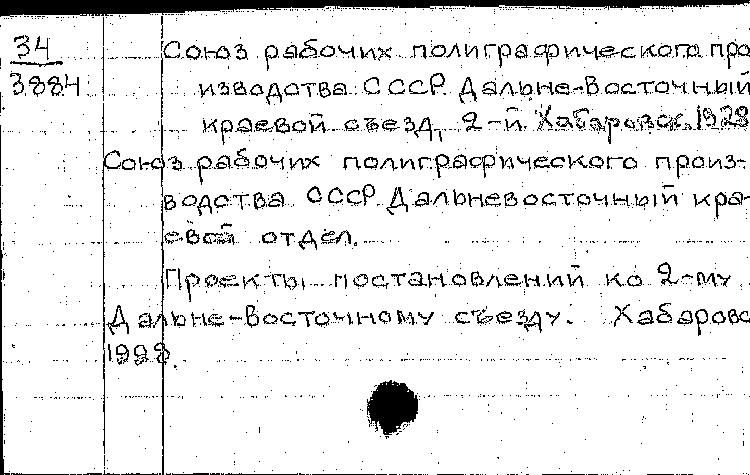 34
3884
Союз рабочих полиграфического про
изводства СССР. Дальне-Восточный
краевой съезд, 2-й. Хабаровск. 1928
Союз рабочих полиграфического произ-
водства СССР. Дальневосточный кра-
евой отдел.
Проекты постановлений ко 2-му
Дальне-Восточному съезду. Хабаровс
1928.